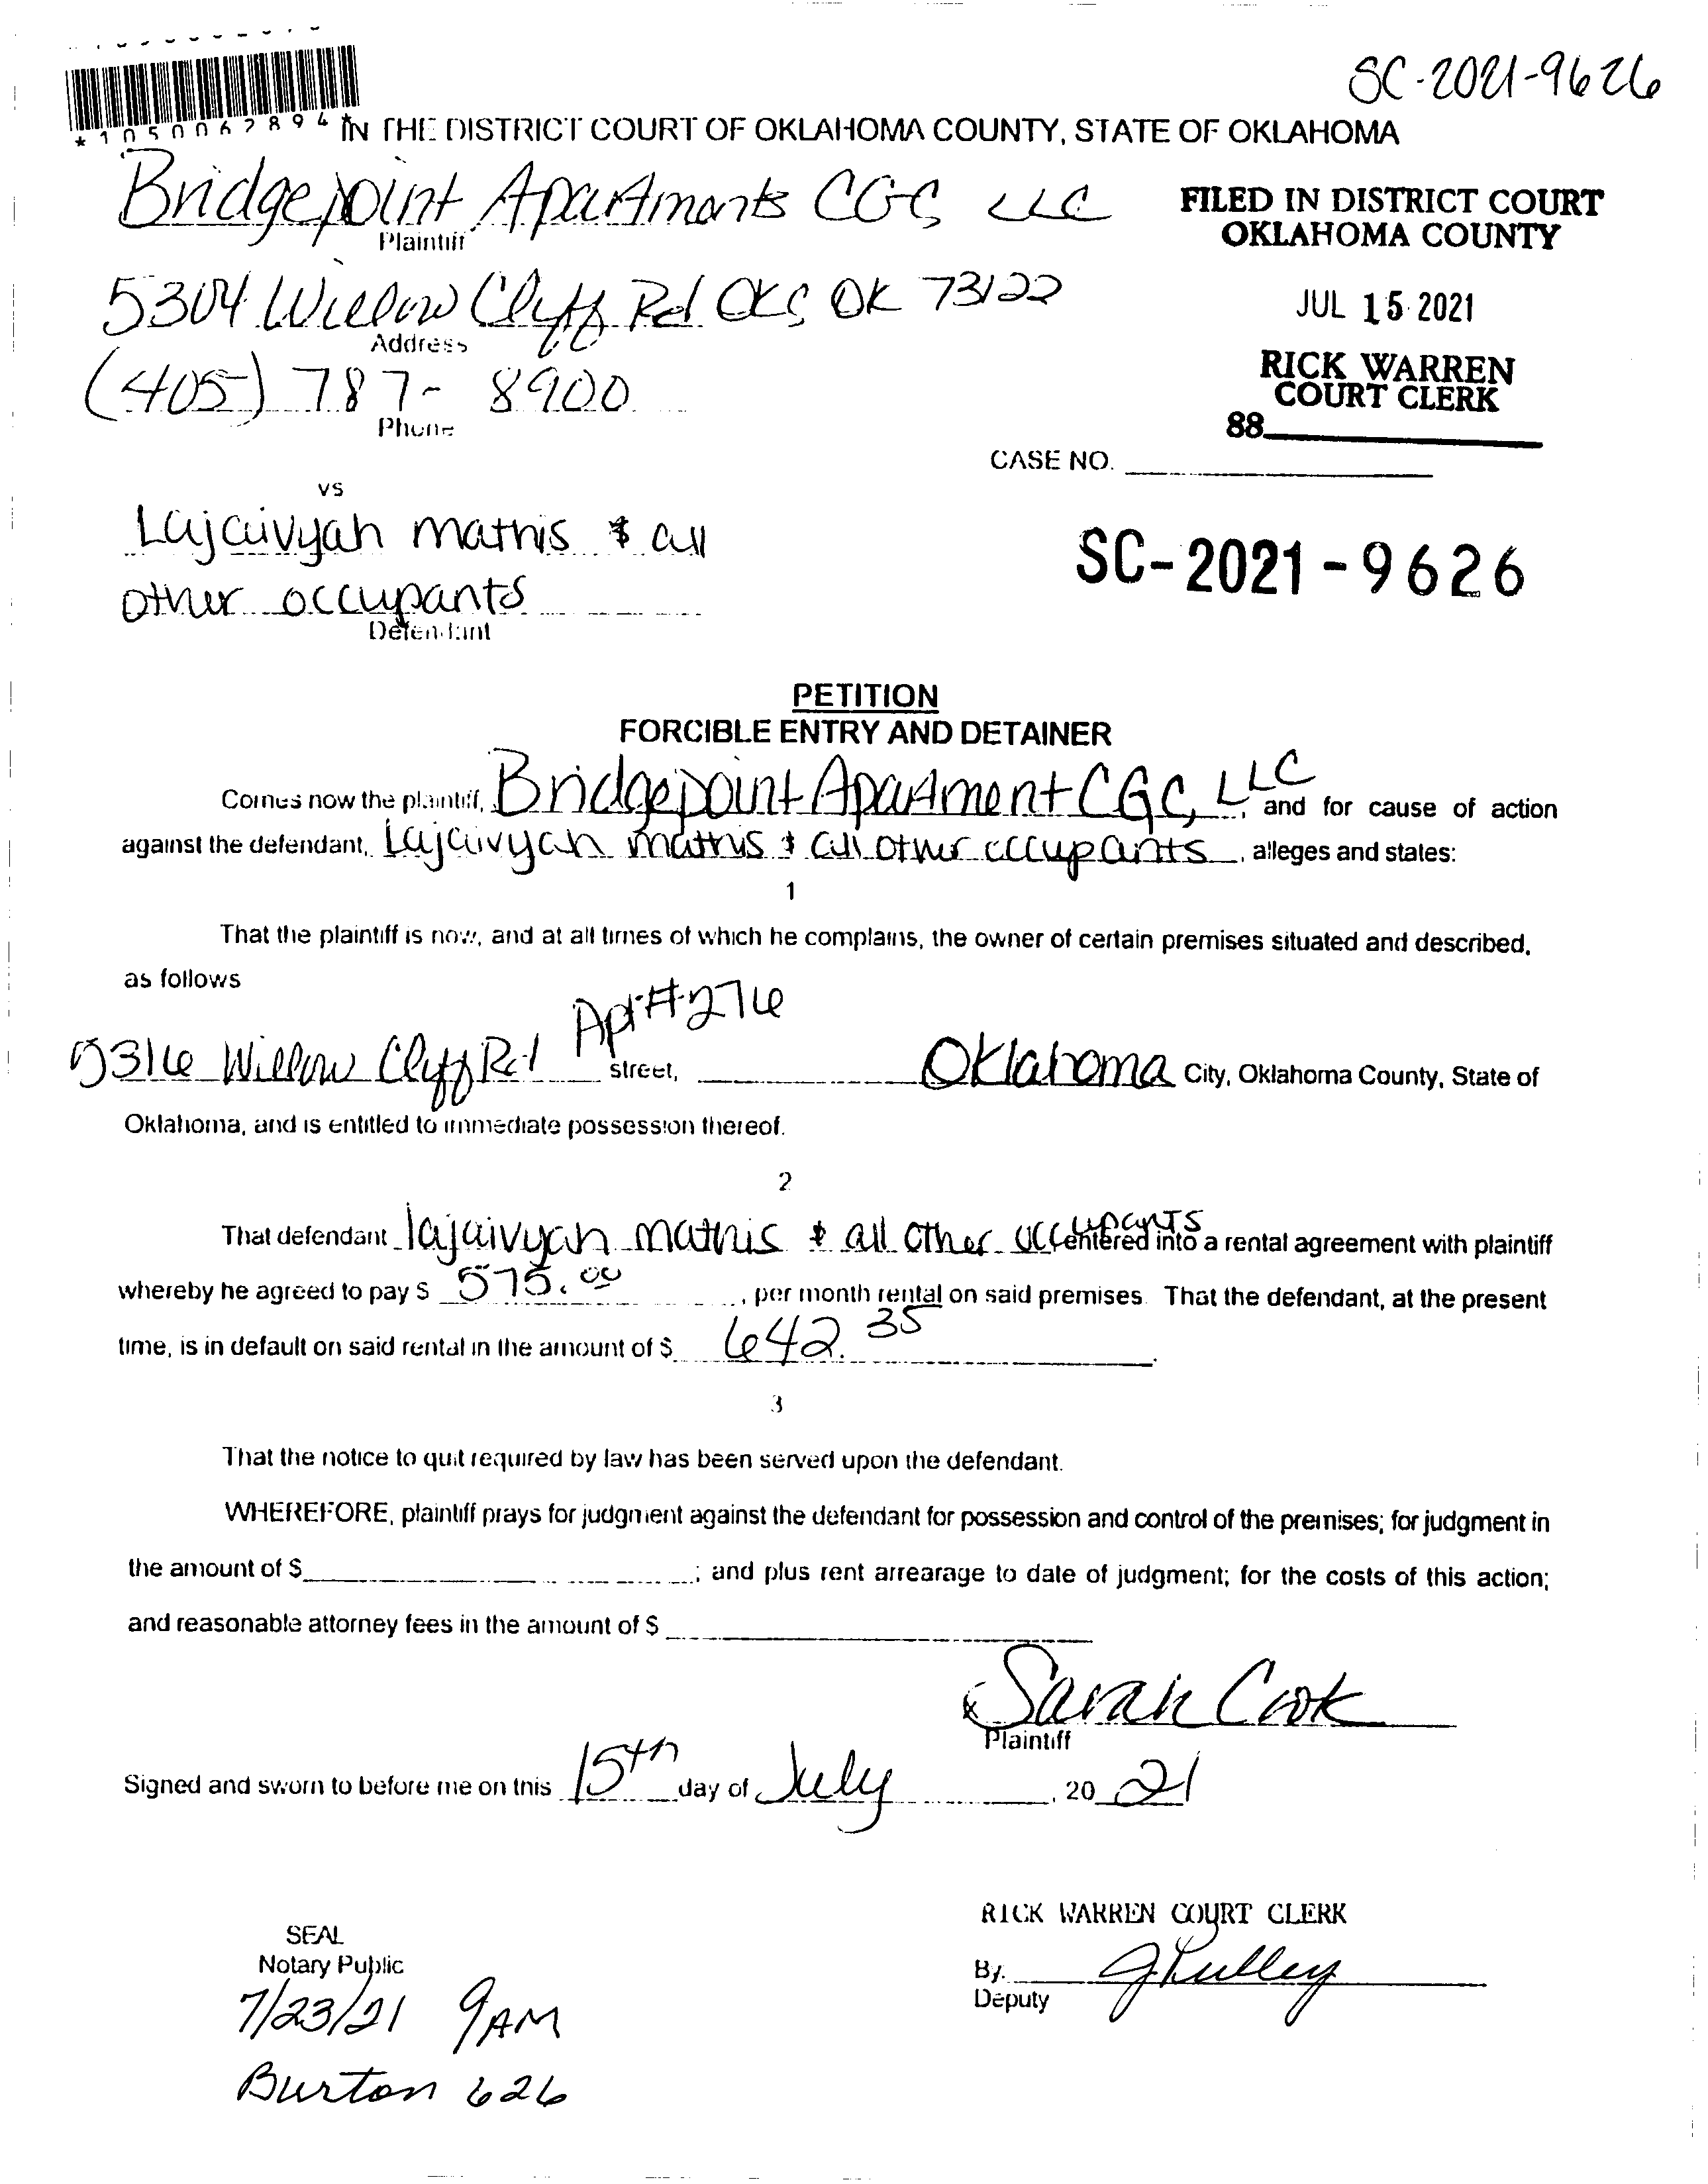 SC-2021-9626
*1050062894*
IN THE DISTRICT COURT OF OKLAHOMA COUNTY, STATE OF OKLAHOMA
Bridgepoint Apartments CGC, LLC
Plaintiff
FILED IN DISTRICT COURT
OKLAHOMA COUNTY
5304 Willow Cliff Rd OKC, OK 73122
Address
JUL 15 2021
(405) 787-8900
Phone
RICK WARREN
COURT CLERK
88
CASE NO.
vs
Lajaivyah mathis & all
other occupants
Defendant
SC-2021-9626
PETITION
FORCIBLE ENTRY AND DETAINER
Comes now the plaintiff, Bridgepoint Apartment CGC, LLC, and for cause of action
against the defendant, Lajaivyah mathis & all other occupants, alleges and states:
1
That the plaintiff is now, and at all times of which he complains, the owner of certain premises situated and described,
as follows
5316 Willow Cliff Rd Apt #276 street, Oklahoma City, Oklahoma County, State of
Oklahoma, and is entitled to immediate possession thereof.
2
That defendant lajaivyah mathis & all other occupants entered into a rental agreement with plaintiff
whereby he agreed to pay $ 575.00, per month rental on said premises. That the defendant, at the present
time, is in default on said rental in the amount of $ 642.35.
3
That the notice to quit required by law has been served upon the defendant.
WHEREFORE, plaintiff prays for judgment against the defendant for possession and control of the premises; for judgment in
the amount of $ ; and plus rent arrearage to date of judgment; for the costs of this action;
and reasonable attorney fees in the amount of $
x Sarah Cook
Plaintiff
Signed and sworn to before me on this 15th day of July, 20 21
RICK WARREN COURT CLERK
SEAL
Notary Public
By. J Pulley
Deputy
7/23/21 9AM
Burton 626